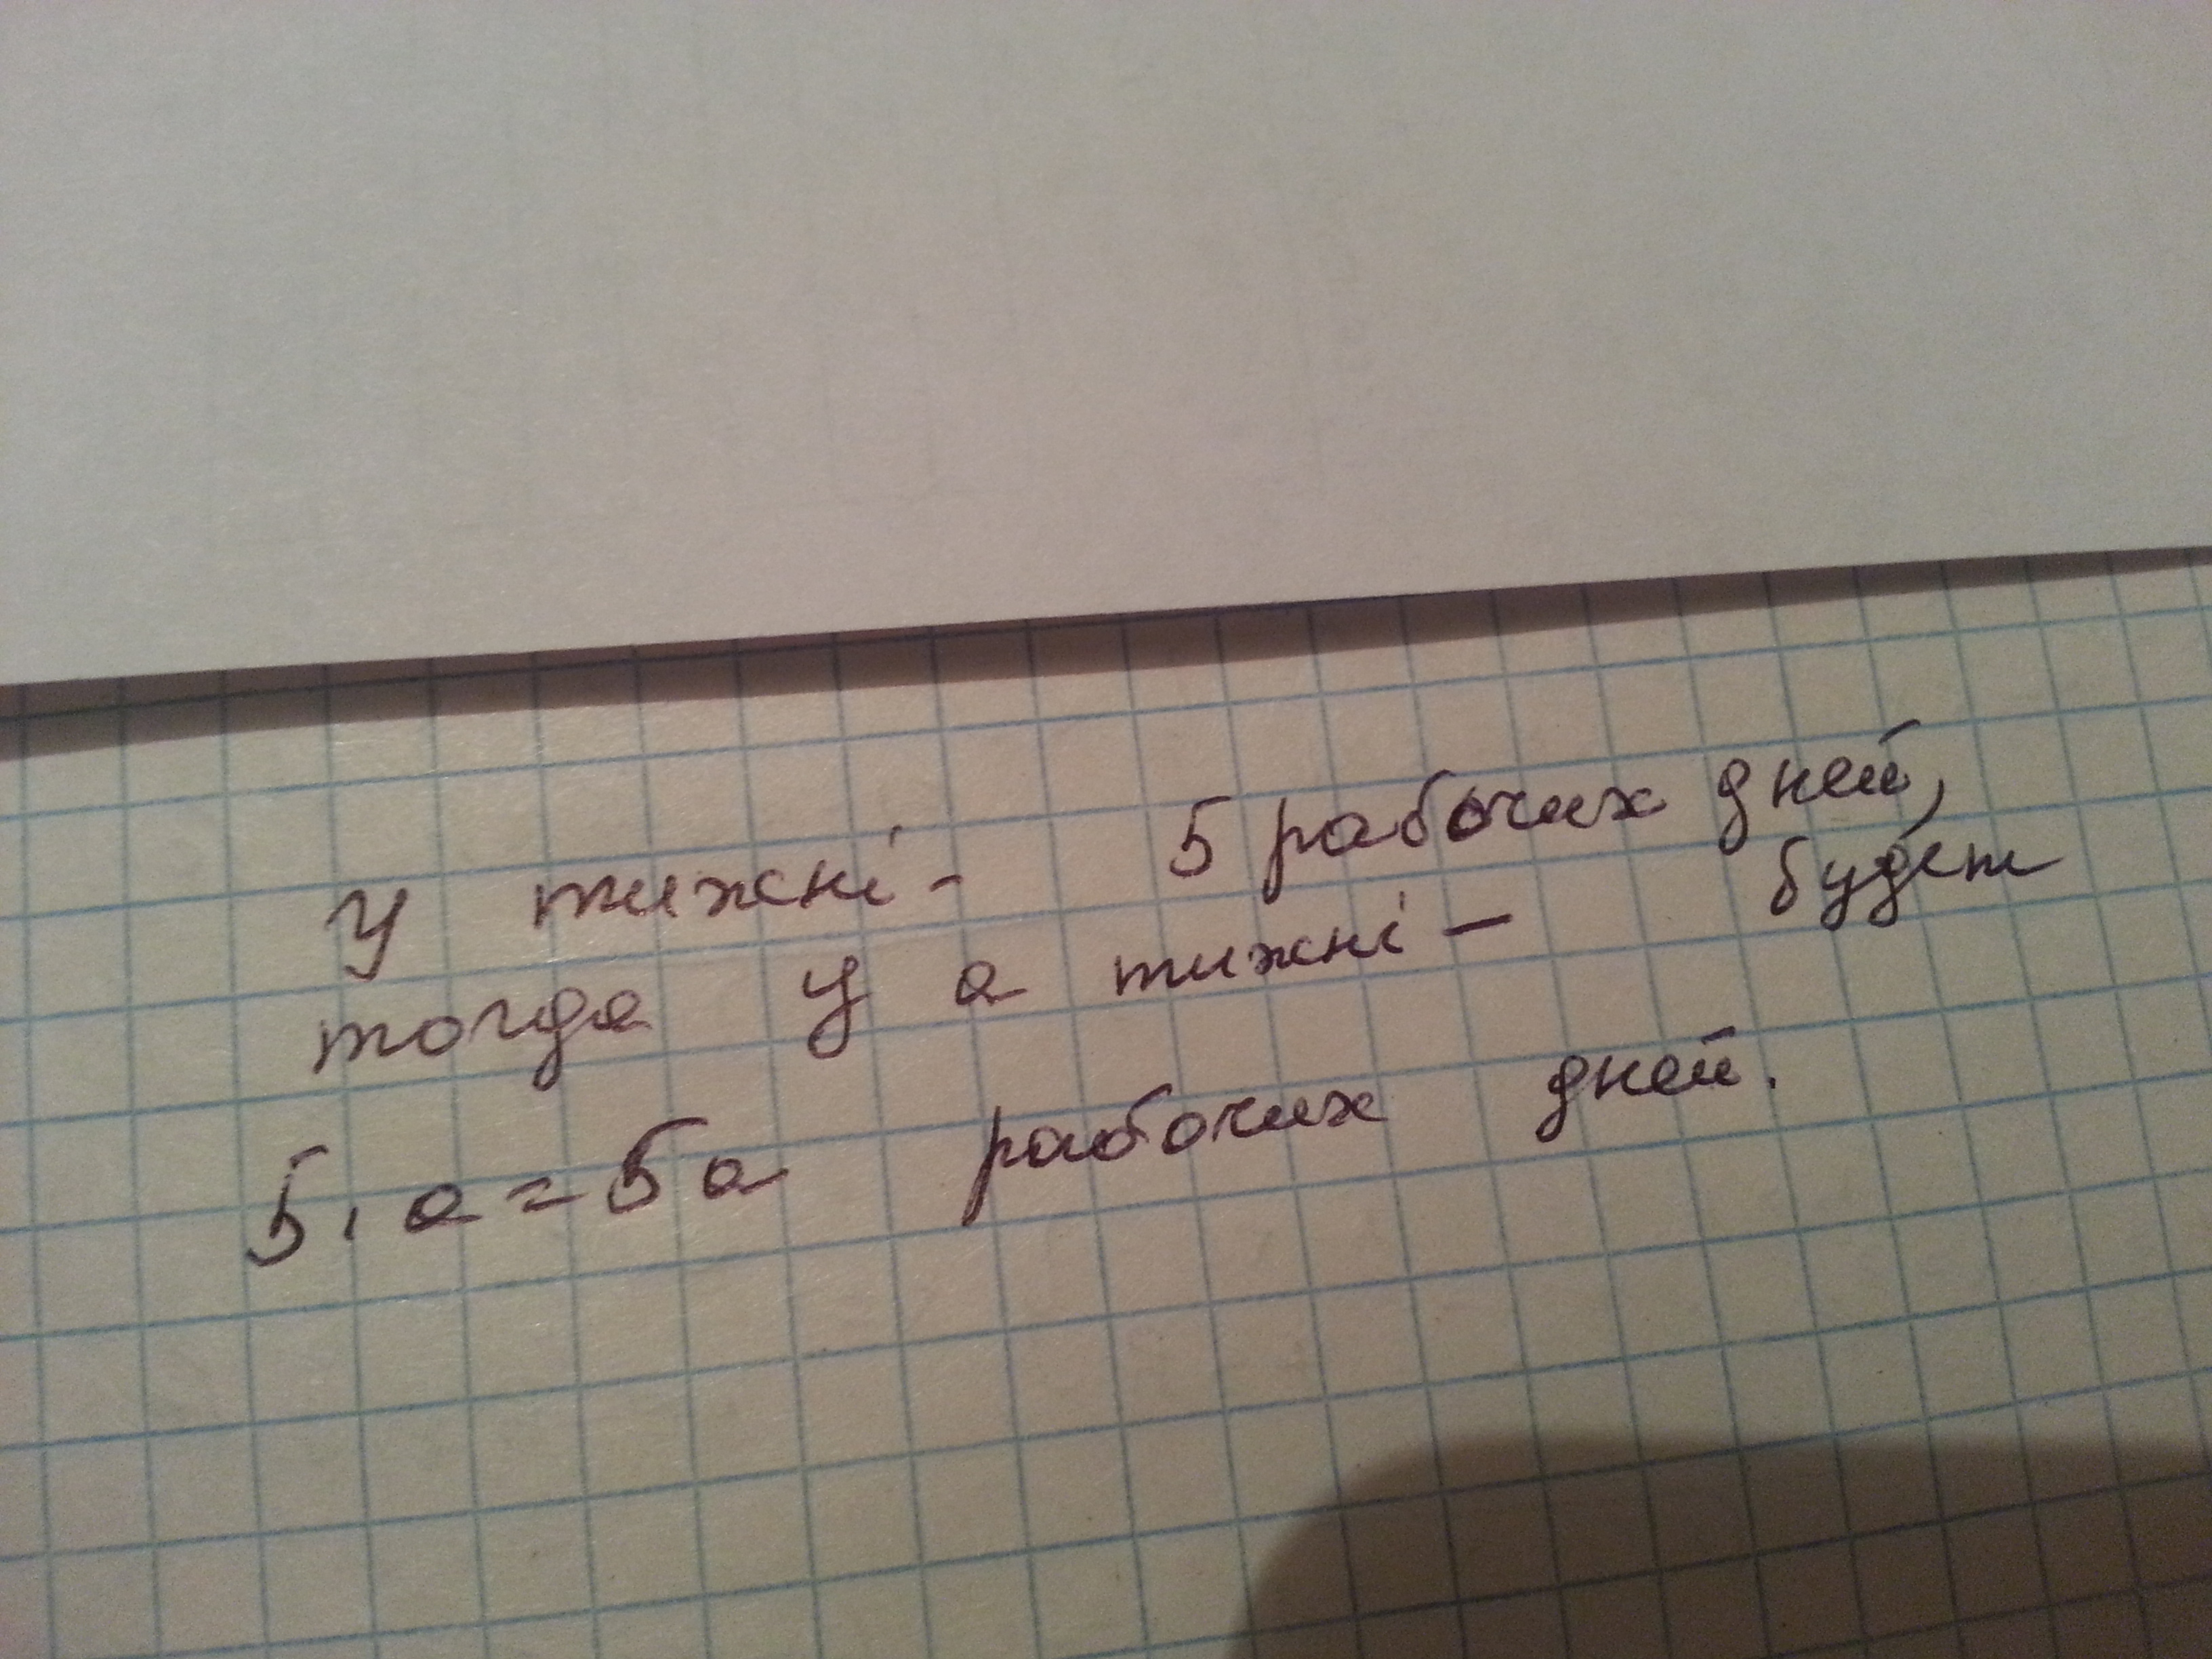 У тижні - 5 рабочих дней,
тогда у а тижні — будет
5 · а = 5а рабочих дней.